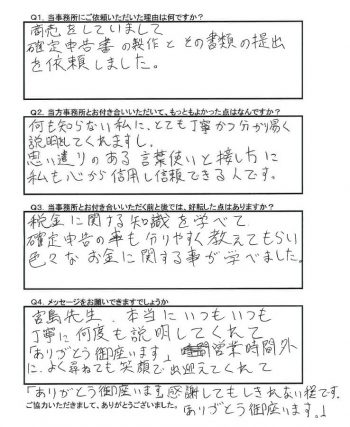 Q1. 当事務所にご依頼いただいた理由は何ですか？
商売をしていまして
確定申告書の製作とその書類の提出
を依頼しました。
Q2. 当方事務所とお付き合いいただいて、もっともよかった点はなんですか？
何も知らない私に、とても丁寧かつ分かり易く
説明してくれますし。
思い遣りのある言葉使いと接し方に
私も心から信用し信頼できる人です。
Q3. 当事務所とお付き合いいただく前と後では、好転した点はありますか？
税金に関する知識を学べて
確定申告の事も分りやすく教えてもらい
色々なお金に関する事が学べました。
Q4. メッセージをお願いできますでしょうか
吉島先生、本当にいつもいつも
丁寧に何度も説明してくれて
「ありがとう御座います」営業時間外
に、よく尋ねても笑顔で出迎えてくれて
「ありがとう御座います」感謝してもしきれない程です。
ご協力いただきまして、ありがとうございました。
ありがとう御座います。」